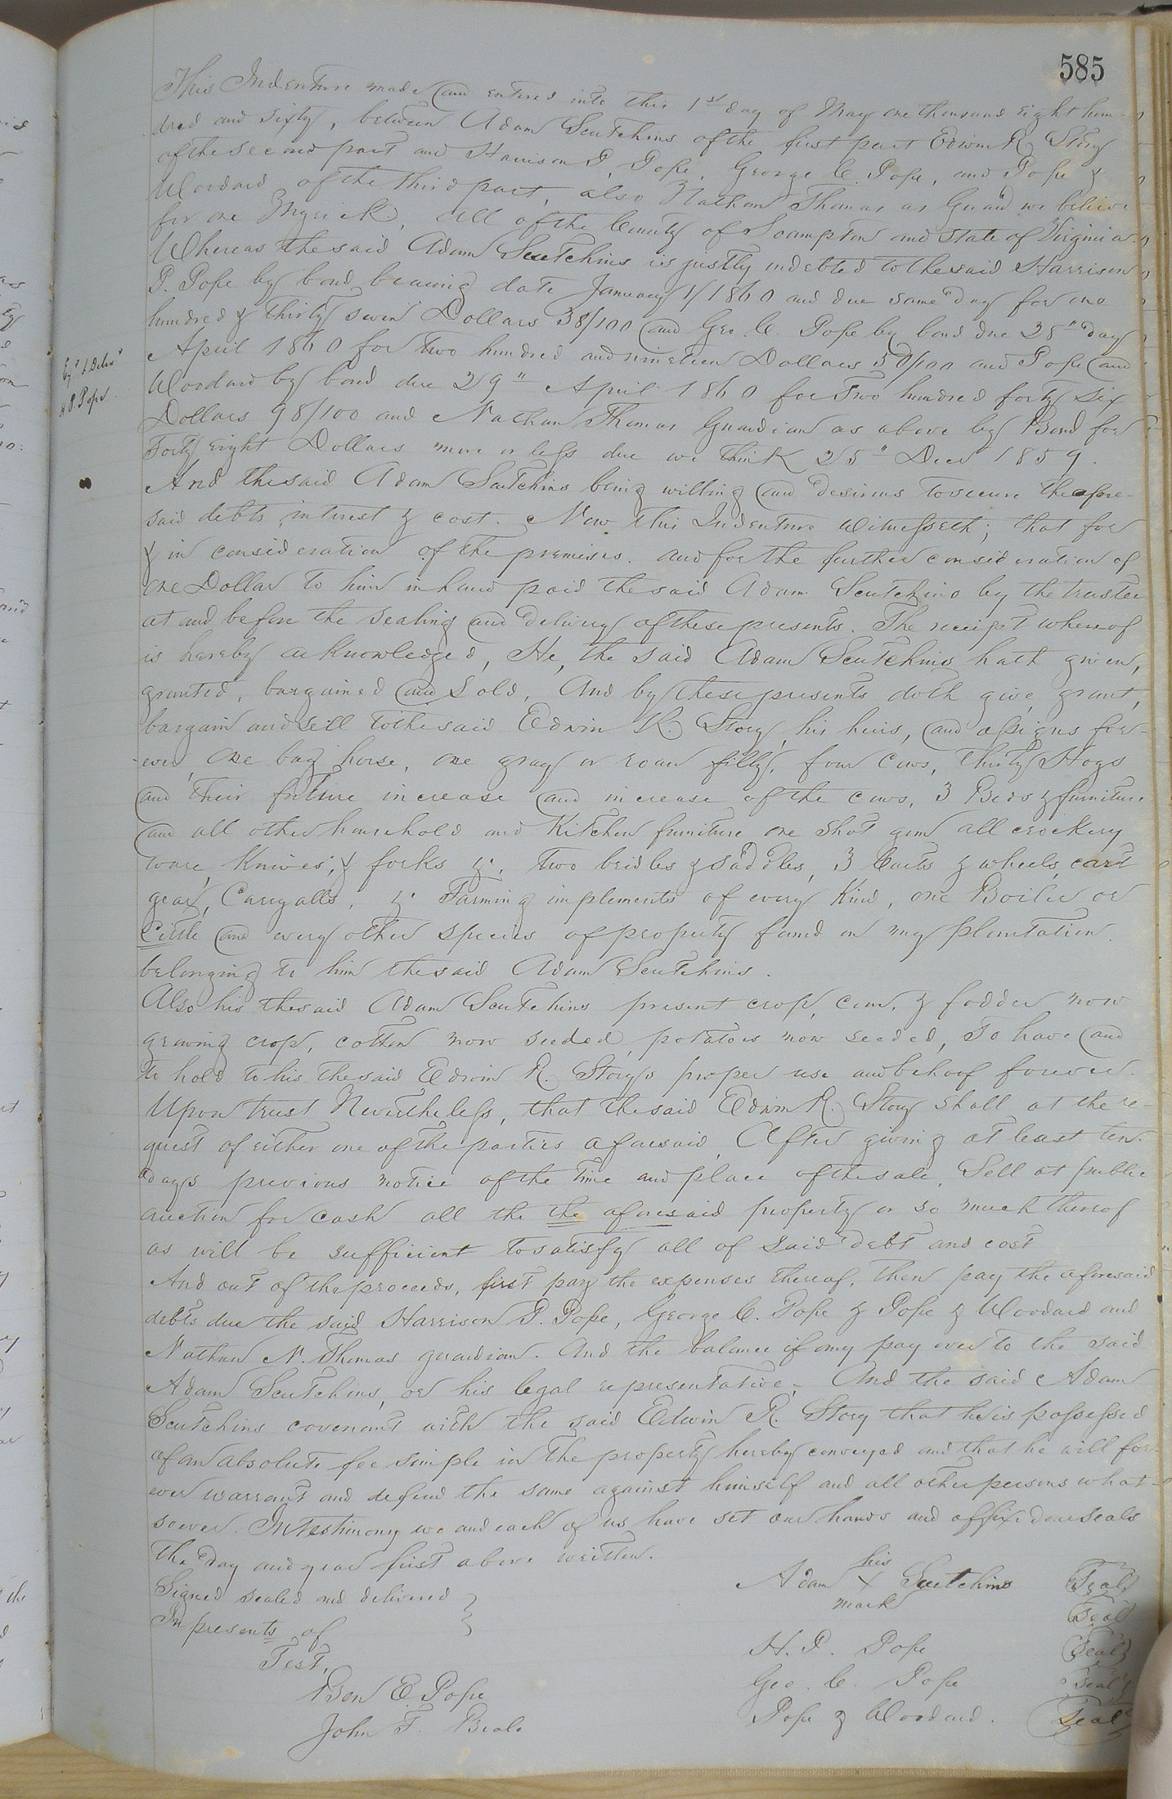 585
This Indenture made and entered into this 1st day of May one thousand eight hun-
dred and sixty, between Adam Scutchins of the first part Edwin R. Story
of the second part and Harrison P. Pope, George C. Pope, and Pope &
Woodard of the third part, also Nathan Thomas as Guard we believe
for one Myrick, all of the County of Soampton and State of Virginia
Whereas the said Adam Scutchins is justly indebted to the said Harrison
P. Pope by bond bearing date January 1/1860 and due same day for one
hundred & thirty seven Dollars 38/100 and Geo. C. Pope by bond due 28th day
April 1860 for two hundred and nineteen Dollars 50/100 and Pope and
Woodard by bond due 29" April 1860 for Two hundred forty six
Dollars 98/100 and Nathan Thomas Guardian as above by Bond for
Forty eight Dollars more or less due we think 25" Decr 1859.
And the said Adam Scutchins being willing and desirous to secure the afore-
said debts, interest & cost. Now This Indenture Witnesseth; that for
& in consideration of the premises. and for the further consideration of
one Dollar to him in hand paid the said Adam Scutchins by the trustee
at and before the sealing and delivery of these presents. The receipt whereof
is hereby acknowledged, He, the said Adam Scutchins hath given,
granted, bargained and Sold, And by these presents doth give, grant,
bargain and sell to the said Edwin R. Story, his heirs, and assigns for-
ever, one bay horse, one gray or roan filly, four cows, thirty Hogs
and their future increase and increase of the cows, 3 Beds & furniture
and all other household and Kitchen furniture, one shot gun all crockery
ware, Knives, & forks &c. two bridles & saddles, 3 Carts & wheels, cart
gear, Carryalls, &c Farming implements of every kind, one Boiler or
Cittle and every other species of property found on my plantation.
belonging to him the said Adam Scutchins.
Also his the said Adam Scutchins present crop, corn, & fodder now
growing crop, cotton now seeded, potatoes now seeded, To have and
to hold to his the said Edwin R. Storys proper use and behoof forever.
Upon trust Nevertheless, that the said Edwin R. Story shall at the re-
quest of either one of the parties aforesaid, After giving at least ten
days previous notice of the time and place of the sale, Sell at public
auction for cash all the the aforesaid property or so much thereof
as will be sufficient to satisfy all of said debt and cost
And out of the proceeds, first pay the expenses thereof, then pay the aforesaid
debts due the said Harrison P. Pope, George C. Pope & Pope & Woodard and
Nathan N. Thomas guardian. And the balance if any pay over to the said
Adam Scutchins, or his legal representative. And the said Adam
Scutchins covenant with the said Edwin R. Story that he is possessed
of an absolute fee simple in the property hereby conveyed and that he will for
ever warrant and defend the same against himself and all other persons what-
soever. In testimony we and each of us have set our hands and affixed our seals
the day and year first above written.
Signed sealed and delivered
In presents of
Test,
Ben E. Pope
John T. Beale
his
Adam X Scutchins Seal
mark
Seal
H. P. Pope Seal
Geo. C. Pope Seal
Pope & Woodard. Seal